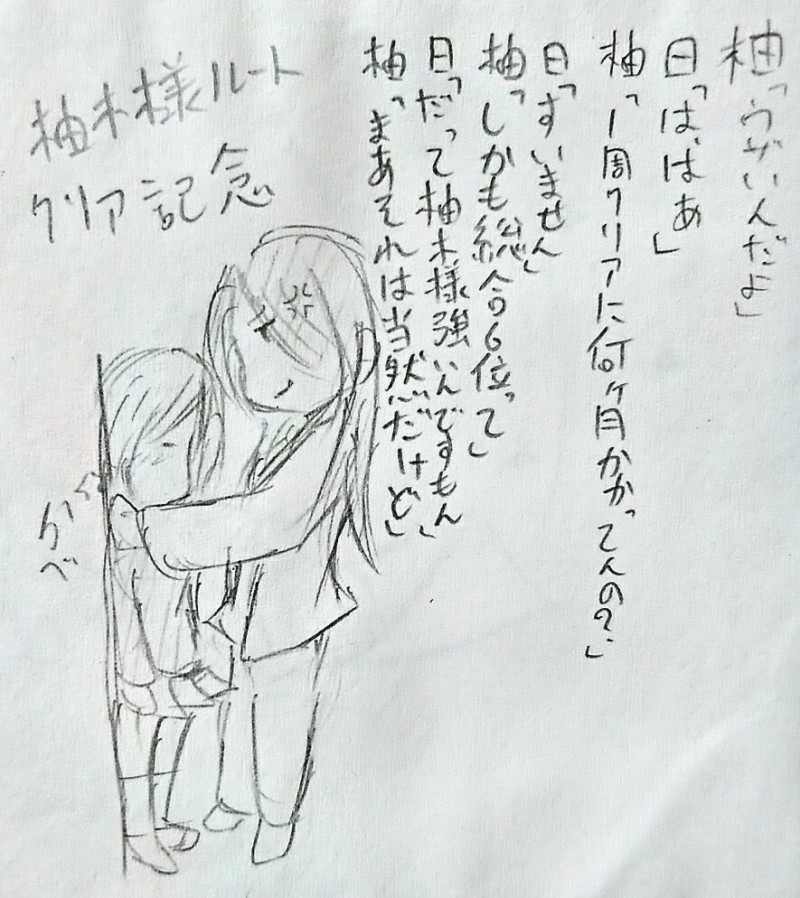 柚「ウザいんだよ」
日「は、はあ」
柚「1周クリアに何ヶ月かかってんの?」
日「すいません」
柚「しかも総合6位って」
日「だって柚木様強いんですもん」
柚「まあそれは当然だけど」
柚木様ルート
クリア記念